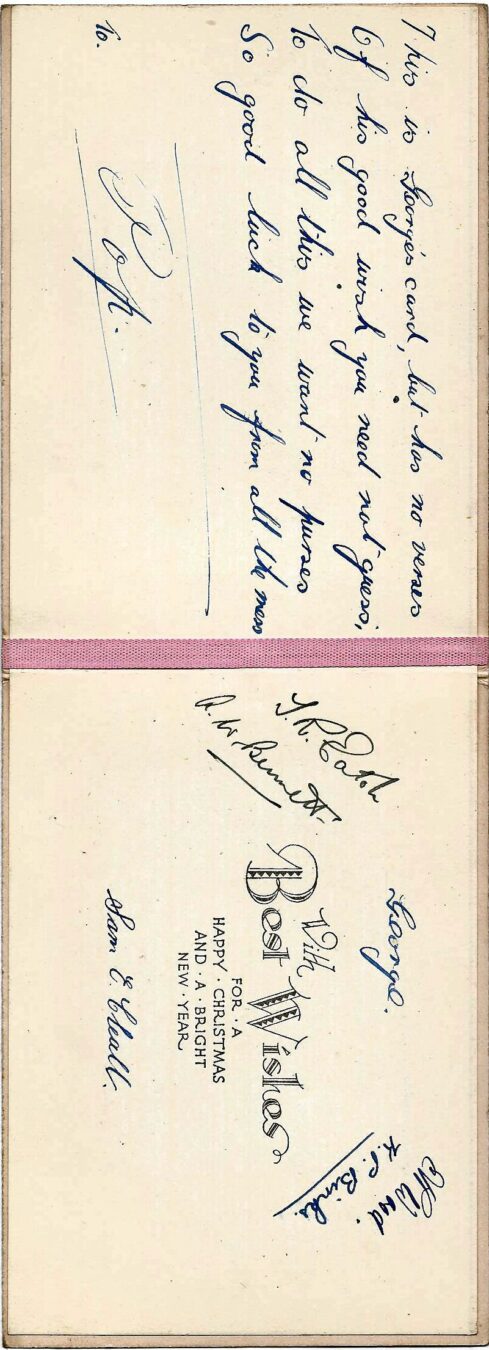 This is George's card, but has no verses
Of his good wish you need not guess,
To do all this we want no purses
So good luck to you from all the mess
To.
Pop.
George.
With
Best Wishes
FOR · A
HAPPY · CHRISTMAS
AND · A · BRIGHT
NEW · YEAR
A. W. Bennett
Wood.
K. P. Binks.
Sam E. Cleall.